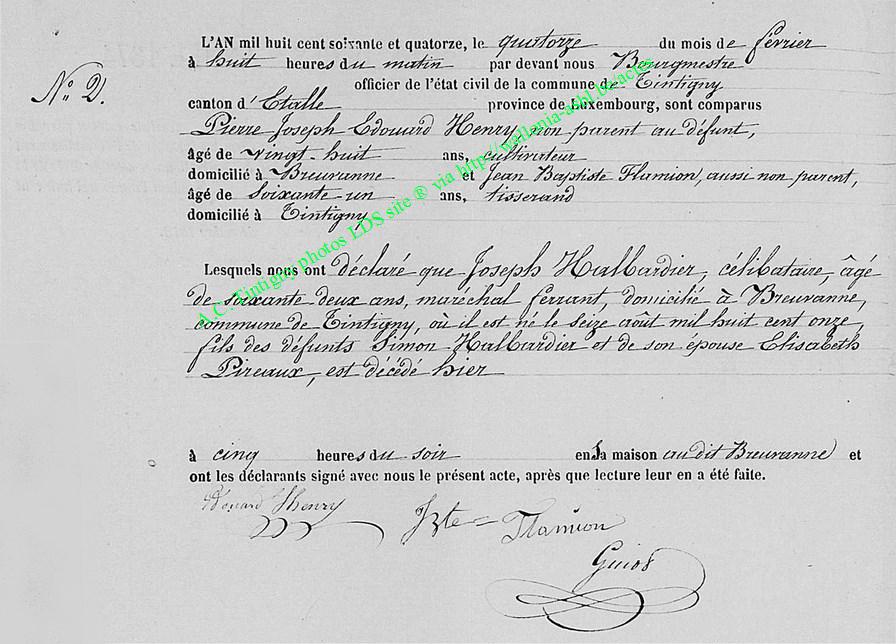 L'AN mil huit cent soixante et quatorze, le quatorze du mois de février
à huit heures du matin par devant nous Bourgmestre
officier de l'état civil de la commune de Tintigny
N° 2.
canton d'Etalle province de Luxembourg, sont comparus
Pierre Joseph Edouard Henry, non parent au défunt,
âgé de vingt-huit ans, cultivateur
domicilié à Breuvanne et Jean Baptiste Flamion, aussi non parent,
âgé de soixante-un ans, tisserand
domicilié à Tintigny
A.C. Tintigny photos LDS site ® via http://wallonia-asbl.be/actes
Lesquels nous ont déclaré que Joseph Halbardier, célibataire, âgé
de soixante deux ans, maréchal ferrant, domicilié à Breuvanne,
commune de Tintigny, où il est né le seize août mil huit cent onze,
fils des défunts Simon Halbardier et de son épouse Elisabeth
Pireaux, est décédé hier
à cinq heures du soir en sa maison au dit Breuvanne et
ont les déclarants signé avec nous le présent acte, après que lecture leur en a été faite.
Edouard Henry
JBte Flamion